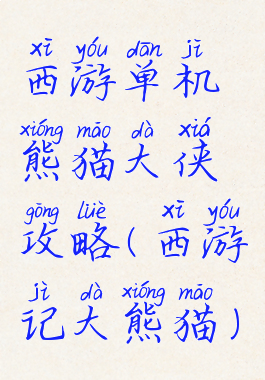 xī yóu dān jī
西游单机
xióng māo dà xiá
熊猫大侠
gōng lüè xī yóu
攻略(西游
jì dà xióng māo
记大熊猫)